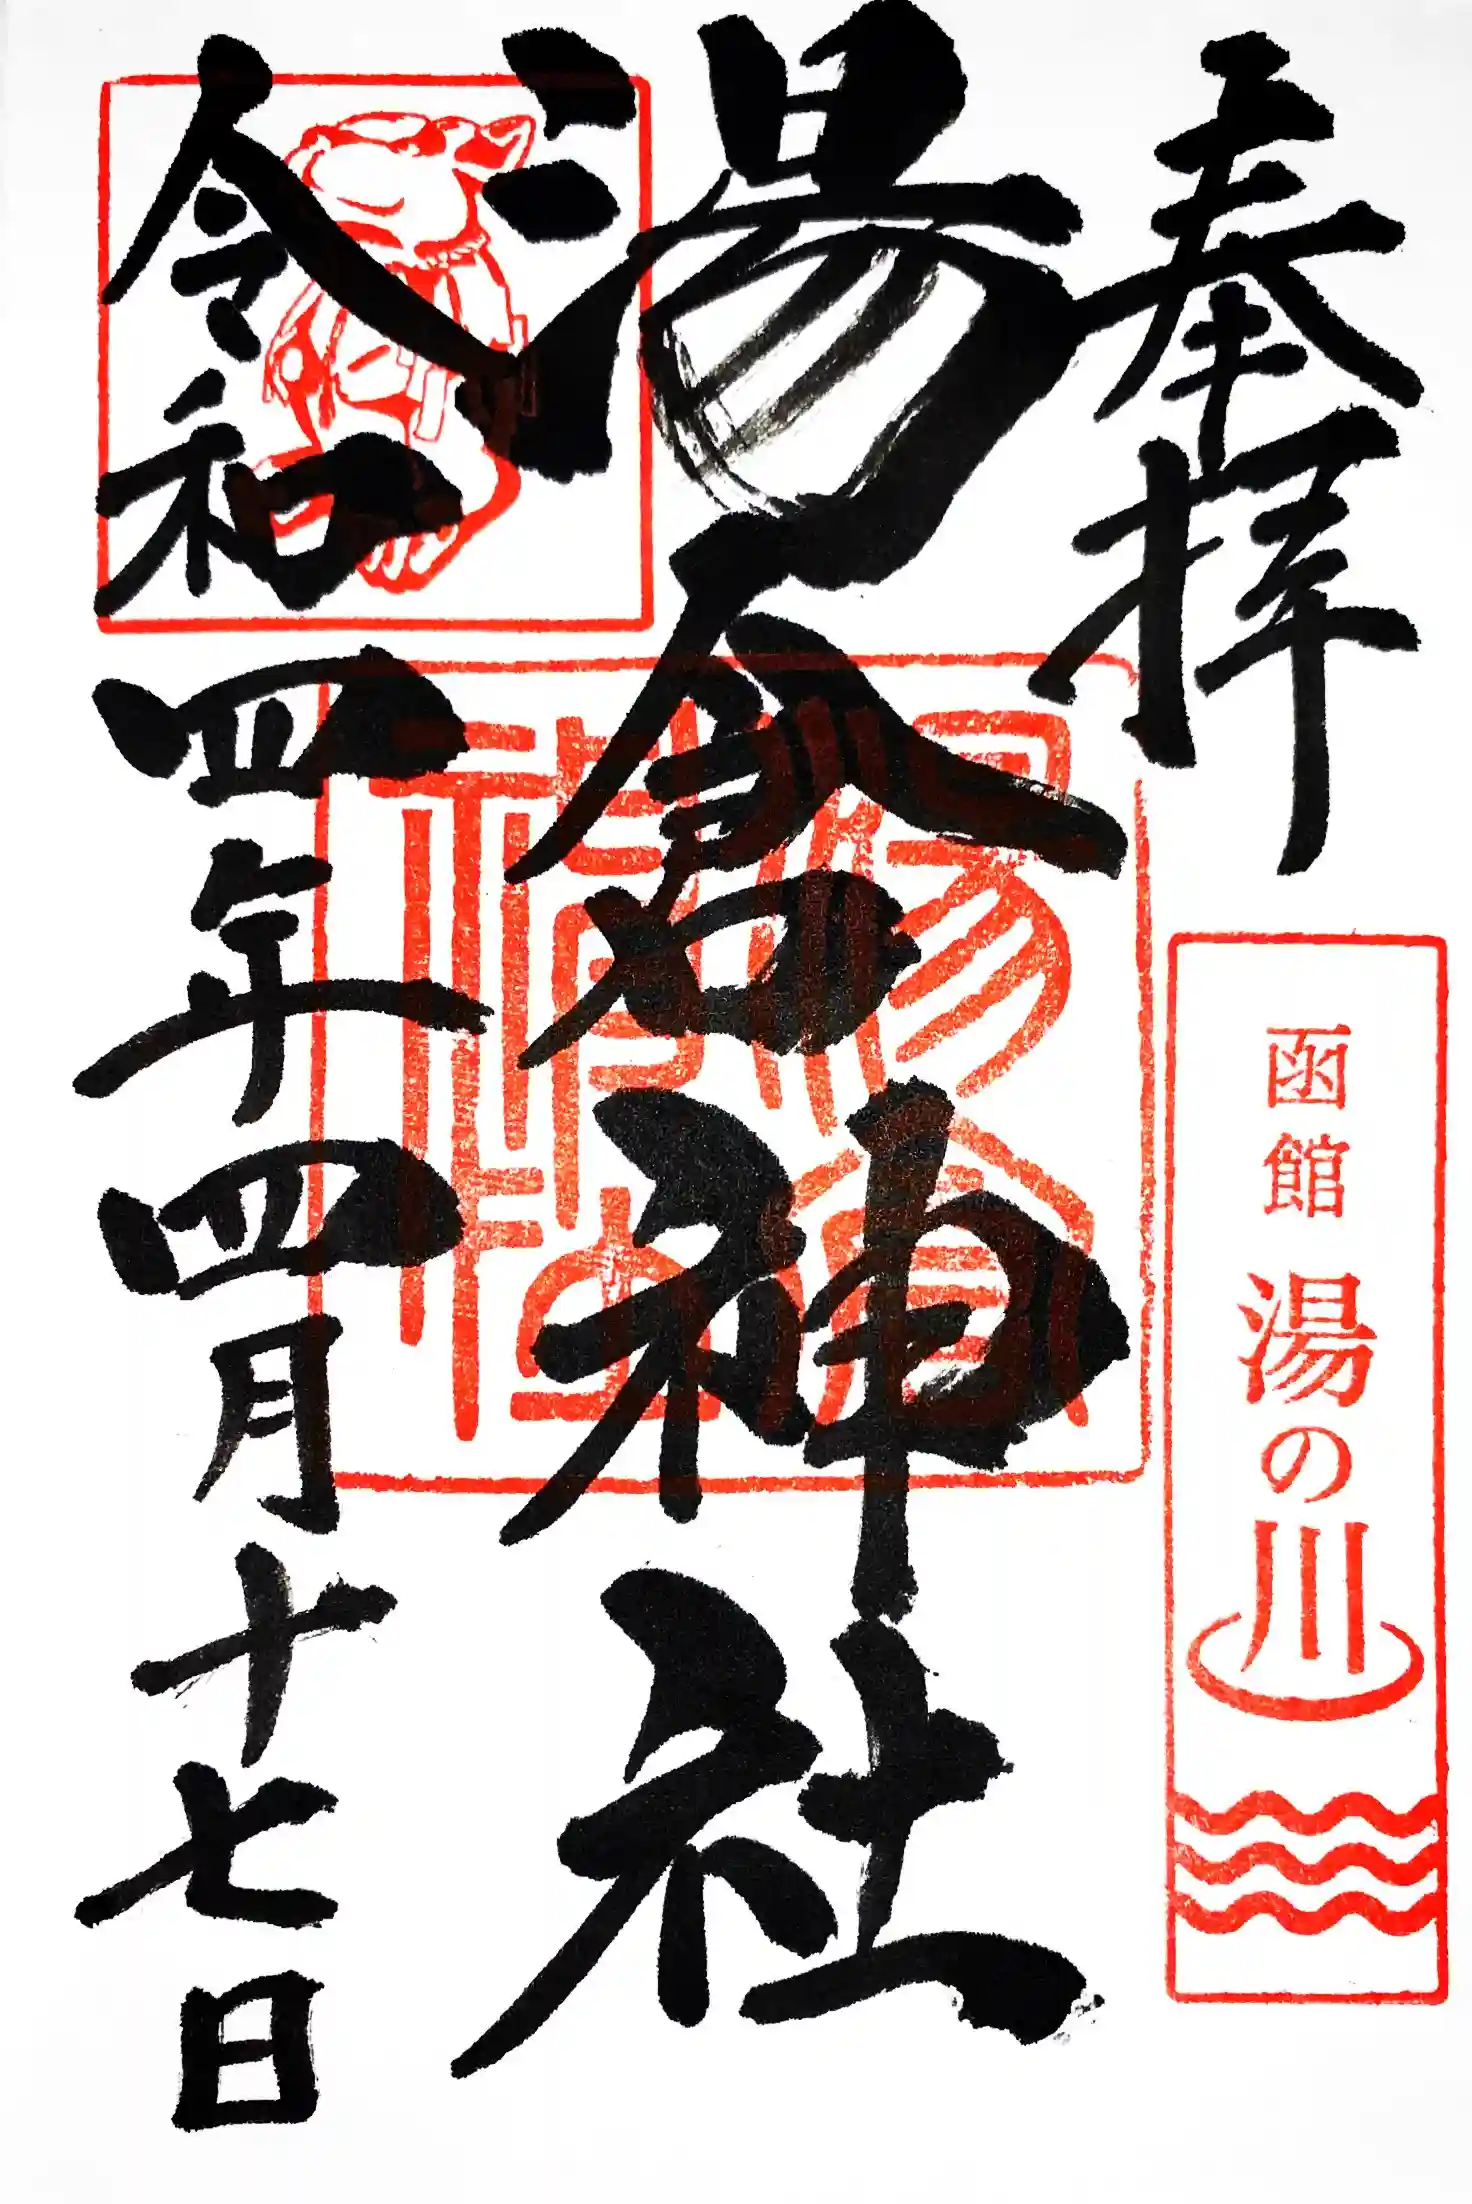 奉拝
函館 湯の川
湯倉神社
令和四年四月十七日